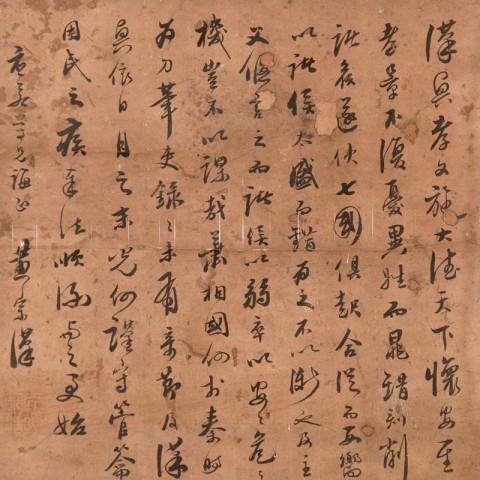 漢興孝文施大德天下懷安至
孝景不復憂異姓而晁錯刻削
諸侯遂使七國俱起合從而西嚮
以諸侯太盛而錯為之不以漸也及主
父偃言之而諸侯以弱卒以安〻危之
機豈不以謀哉蕭相國何於秦時
為刀筆吏錄〻未有奇節及漢
興依日月之末光何謹守管籥
因民之疾秦法順流與之更始
學兄誨正 宗漢